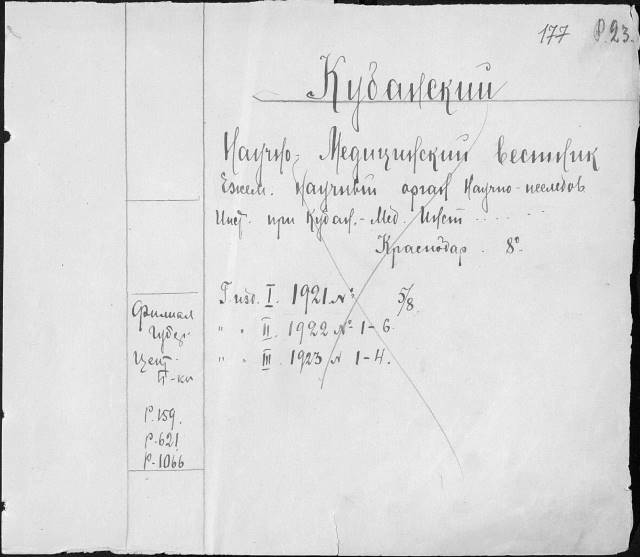 177 Р.23.
Кубанский
Научно-Медицинский вестник
Ежем. Научный орган Научно-исследов
Инст. при Кубан.-Мед. Инст.....
Краснодар. 8°
Г. изд. I. 1921 № 5/8
" " II. 1922 №: 1-6.
" " III. 1923 № 1-4.
Филиал
Губер.
Цент.
Р.159.
Р-621
Р-1066